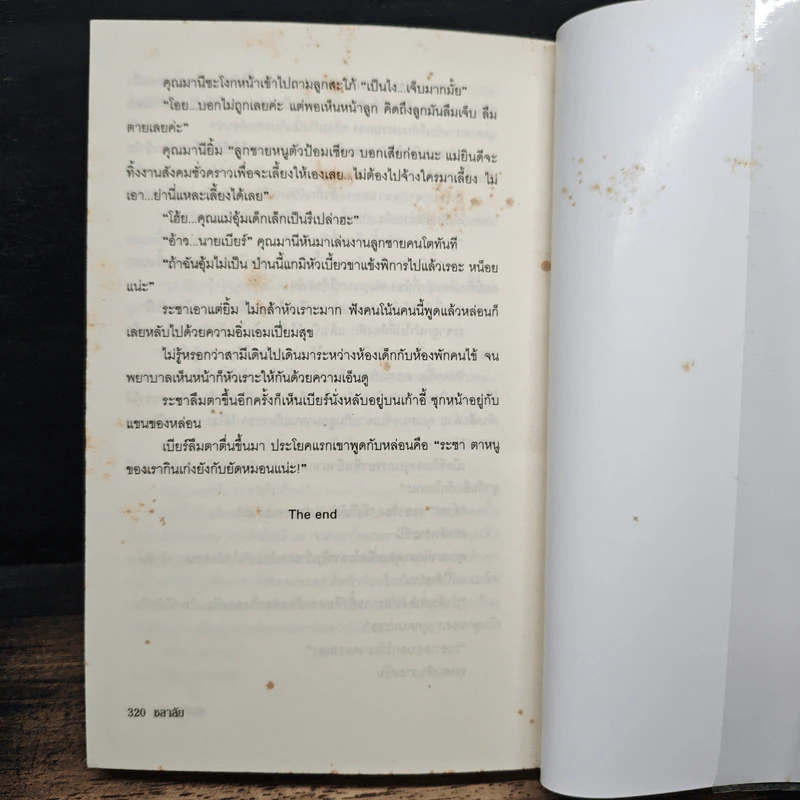 คุณมานีชะโงกหน้าเข้าไปถามลูกสะใภ้ “เป็นไง...เจ็บมากมั้ย”
“โอย...บอกไม่ถูกเลยค่ะ แต่พอเห็นหน้าลูก คิดถึงลูกมันลืมเจ็บ ลืม
ตายเลยค่ะ”
คุณมานียิ้ม “ลูกชายหนูตัวป้อมเชียว บอกเสียก่อนนะ แม่ยินดีจะ
ทิ้งงานสังคมชั่วคราวเพื่อจะเลี้ยงให้เองเลย...ไม่ต้องไปจ้างใครมาเลี้ยง ไม่
เอา...ย่านี่แหละเลี้ยงได้เลย”
“โฮ้ย...คุณแม่อุ้มเด็กเล็กเป็นรึเปล่าฮะ”
“อ้าว...นายเบียร์” คุณมานีหันมาเล่นงานลูกชายคนโตทันที
“ถ้าฉันอุ้มไม่เป็น ป่านนี้แกมิหัวเบี้ยวขาแข้งพิการไปแล้วเรอะ หน็อย
แน่ะ”
ระชาเอาแต่ยิ้ม ไม่กล้าหัวเราะมาก ฟังคนโน้นคนนี้พูดแล้วหล่อนก็
เลยหลับไปด้วยความอิ่มเอมเปี่ยมสุข
ไม่รู้หรอกว่าสามีเดินไปเดินมาระหว่างห้องเด็กกับห้องพักคนไข้ จน
พยาบาลเห็นหน้าก็หัวเราะให้กันด้วยความเอ็นดู
ระชาลืมตาขึ้นอีกครั้งก็เห็นเบียร์นั่งหลับอยู่บนเก้าอี้ ซุกหน้าอยู่กับ
แขนของหล่อน
เบียร์ลืมตาตื่นขึ้นมา ประโยคแรกเขาพูดกับหล่อนคือ “ระชา ตาหนู
ของเรากินเก่งยังกับยัดหมอนแน่ะ!”
The end
320 ชลาลัย